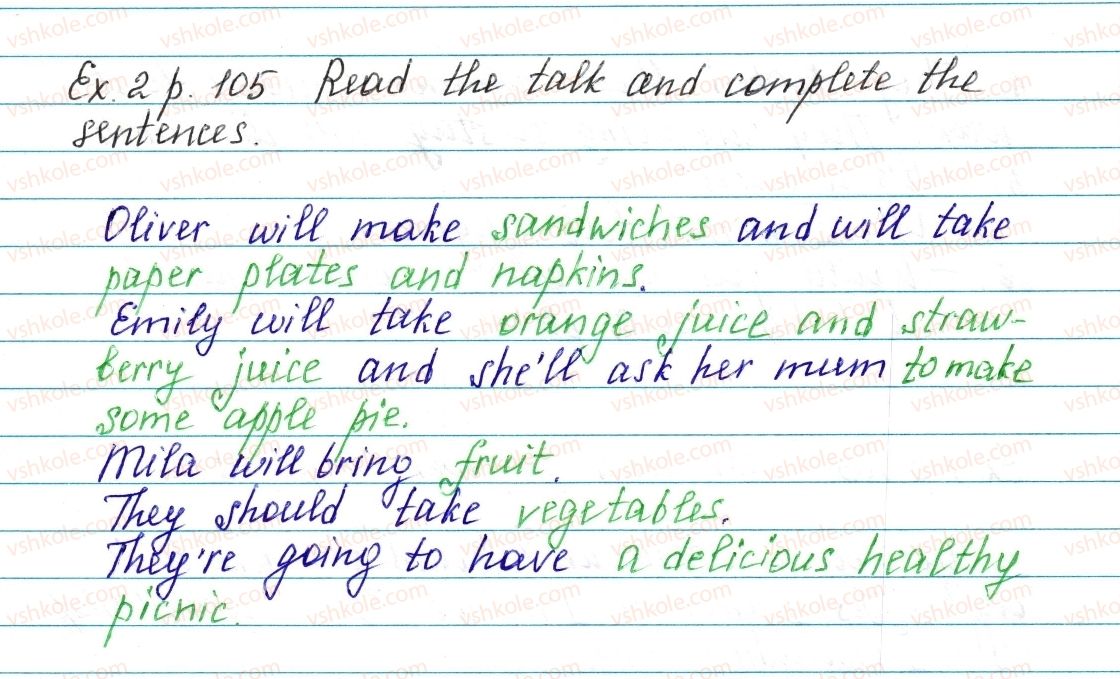 Ex. 2 p. 105 Read the talk and complete the
sentences.
Oliver will make sandwiches and will take
paper plates and napkins.
Emily will take orange juice and straw-
berry juice and she'll ask her mum to make
some apple pie.
Mila will bring fruit.
They should take vegetables.
They're going to have a delicious healthy
picnic.
vshkole.com